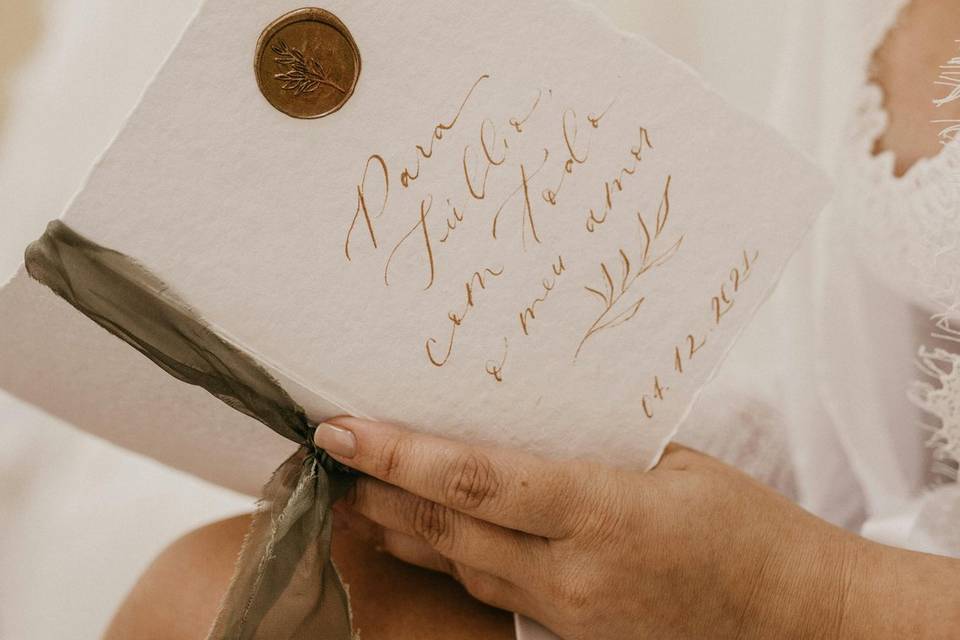 Para
Júllio,
com todo
o meu amor
04.12.2021